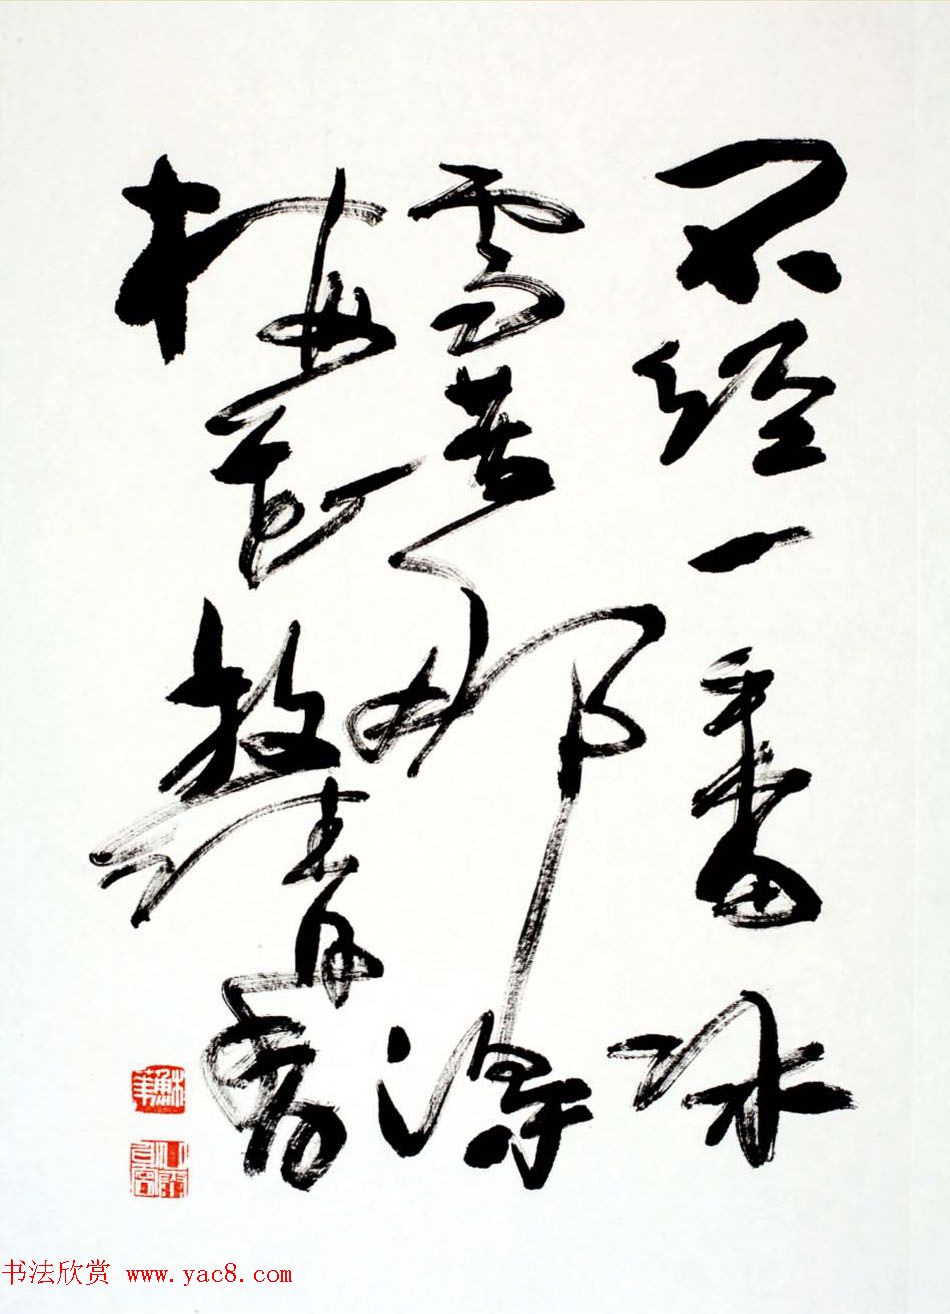 不经一番冰
雪苦那得
梅花放清香
书法欣赏 www.yac8.com